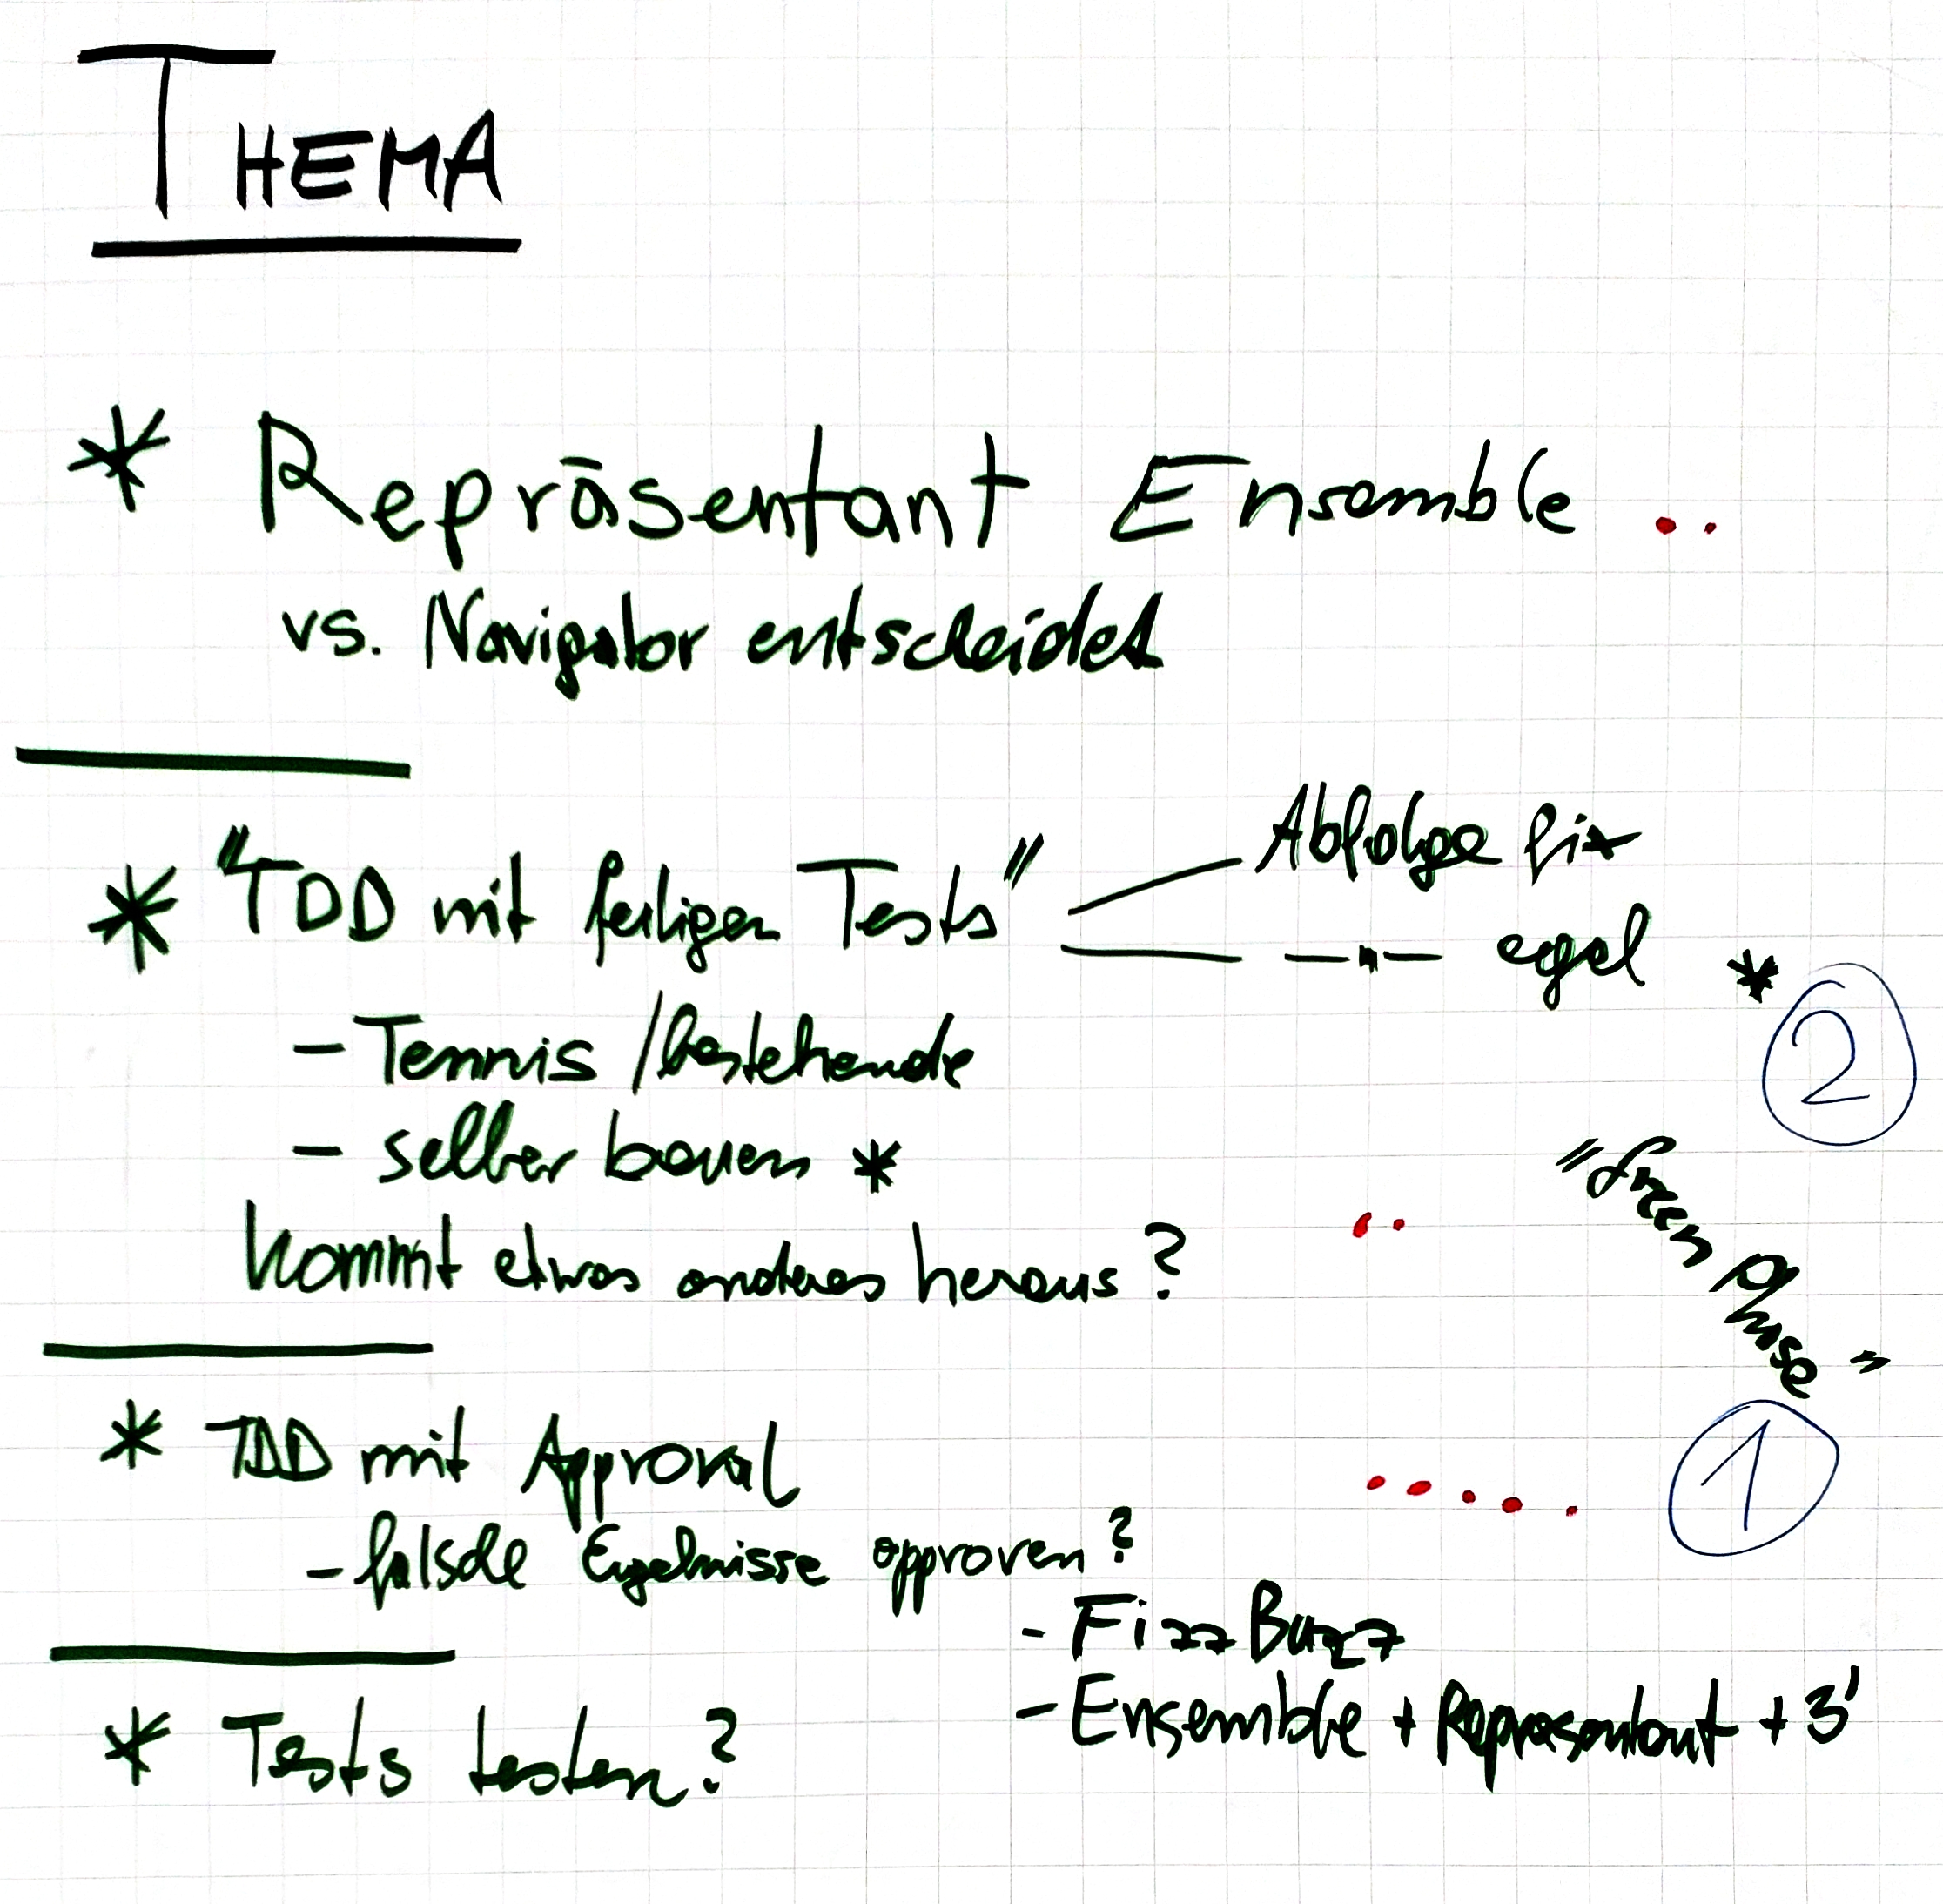 THEMA
* Repräsentant Ensemble ..
vs. Navigator entscheidet
* "TDD mit fertigen Tests"
Abfolge fix
—"— egal *
2
- Tennis / bestehende
- selber bauen *
kommt etwas anderes heraus? ..
"Green Phase"
* TDD mit Approval ..... 1
- falsche Ergebnisse approven?
- FizzBuzz
- Ensemble + Repräsentant + 3'
* Tests testen?